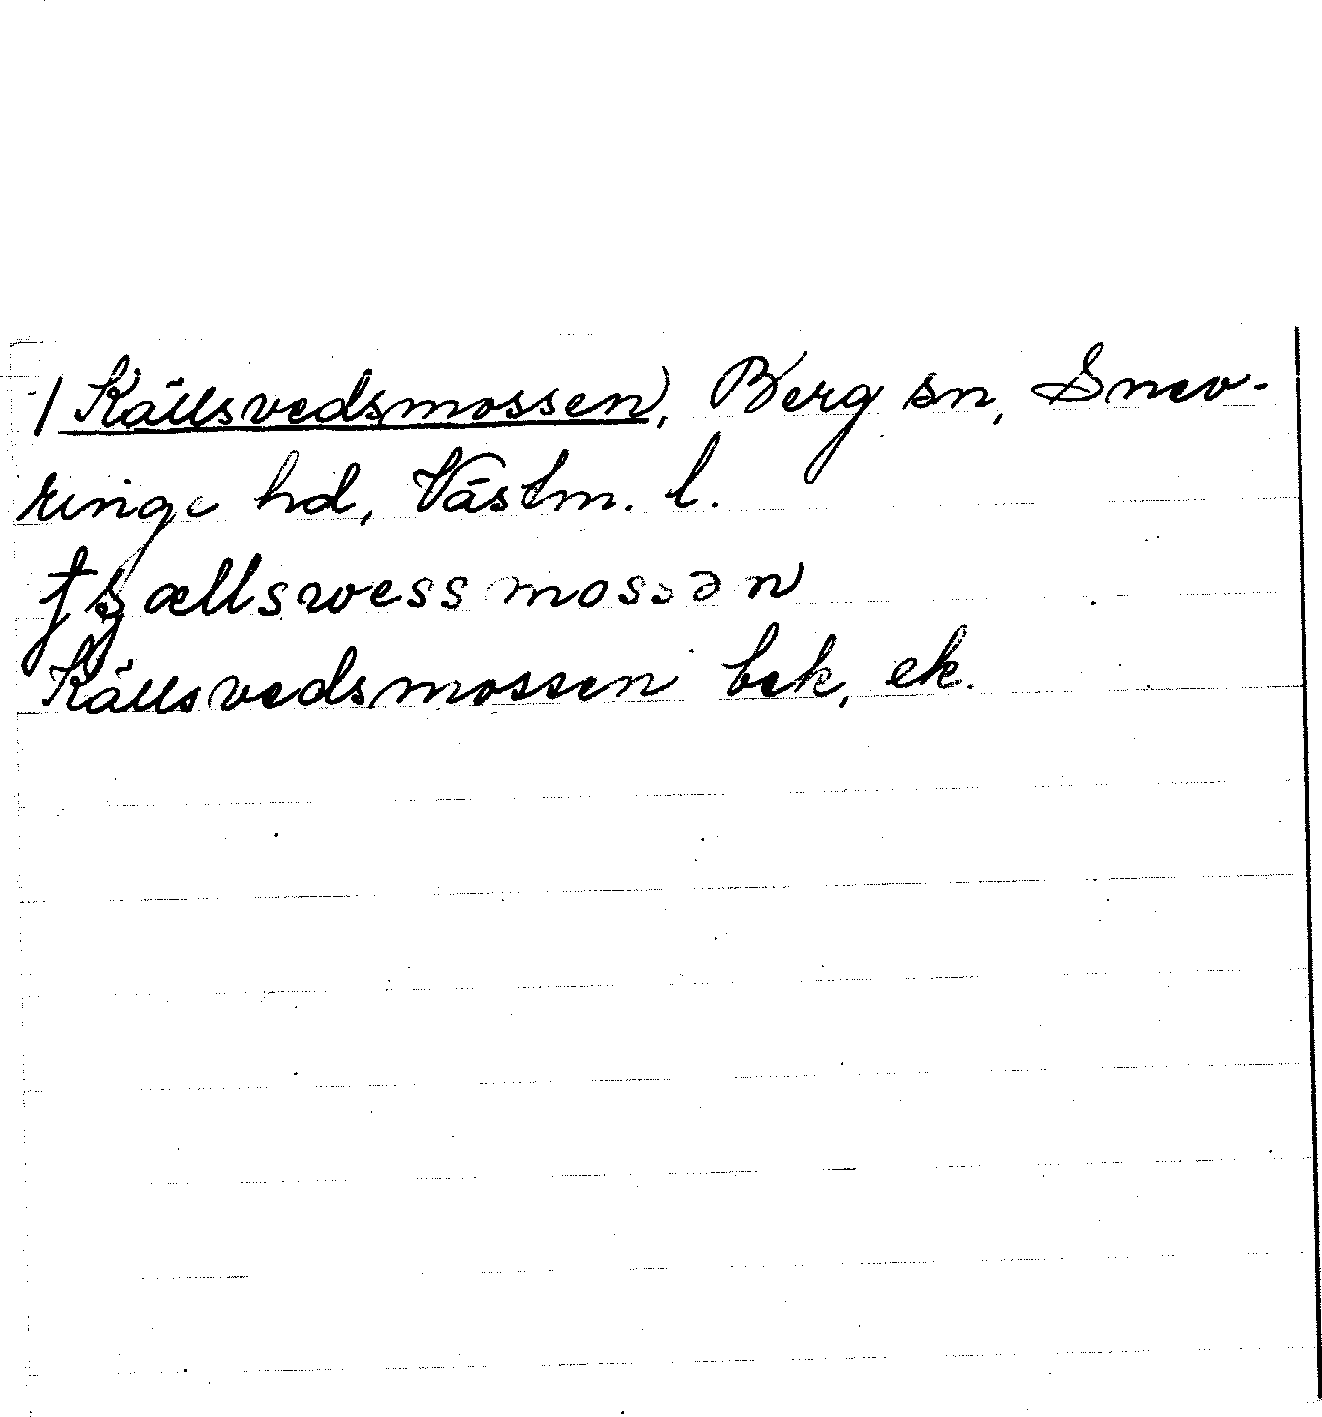 /Källsvedsmossen), Berg sn, Snev-
ringe hd, Västm. l.
mossən
Källsvedsmossen bek, ek.